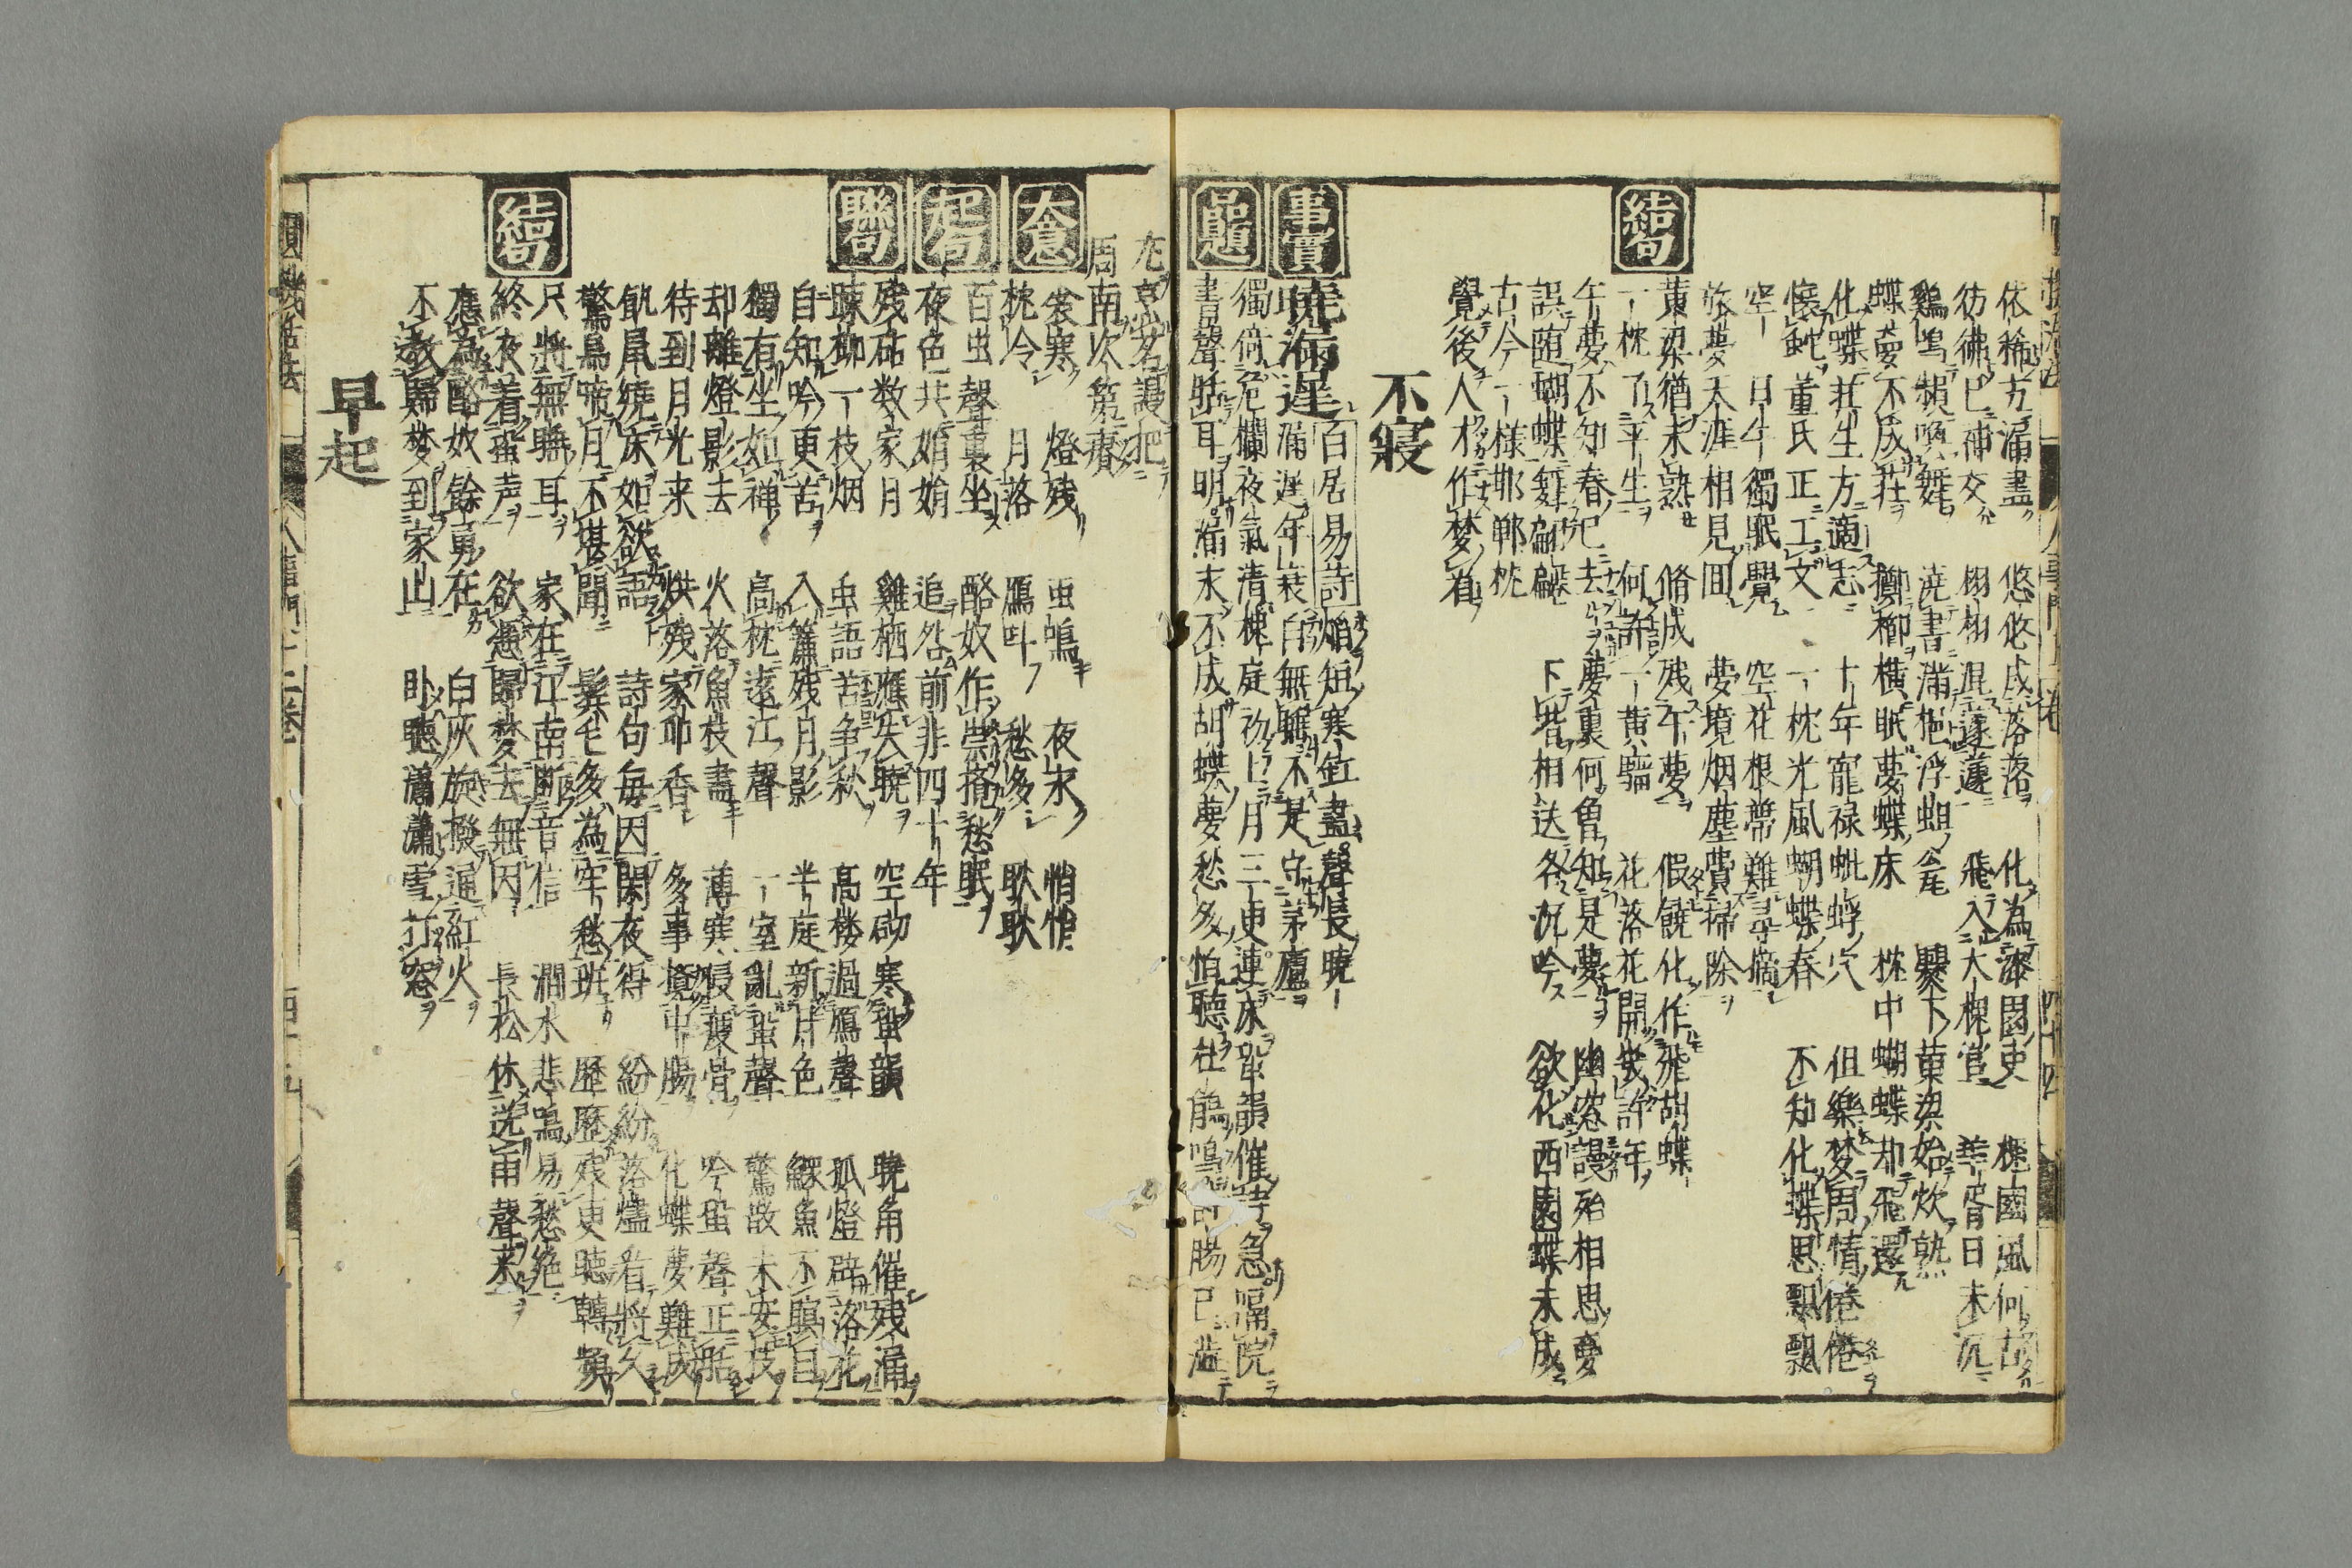 依稀方漏盡 悠悠戍落落 化為漆園吏 槐國風何古
彷彿已神交 栩栩混蘧蘧 飛入大槐宮 華胥日未沉
鷄鳴頻喚舞 澆書滿挹浮蛆瓮 黄梁始炊熟
蝶夢不成莊 擲柳橫眠夢蝶床 枕中蝴蝶却飛還
化蝶莊生方適志 十年寵禄蚍蜉穴 但樂夢周情倦倦
懐蛇董氏正工文 一枕光風蝴蝶春 不知化蝶思飄飄
空 日午獨眠覺 空花根蔕難尋摘
旅夢天涯相見回 夢境烟塵費掃除
黄梁猶未熟 脩成残午夢 假饒化作飛胡蝶
一枕了平生 何許一黄鸝 花落花開幾許年
午夢不知春已去 夢裏何曾知是夢 幽窓謾殆相思夢
誤随蝴蝶舞翩翩 下堦相送各沉吟 欲化西園蝶未成
古今一様邯鄲枕
覺後人才作夢看
結句
不寢
事實
曉漏遅 白居易詩 焰短寒缸盡 聲長曉
漏遅年衰自無睡不是守茅廬
品題
獨倚危欄夜氣清槐庭初上月三更連床蛩韻催詩急隔院
書聲聒耳明漏未不成胡蝶夢愁多怕聽杜鵑鳴
周南次第賡
大意
衾寒 燈残 虫鳴 夜永 悄悄
枕冷 月落 鴈叫 愁多 耿耿
起句
百虫聲裏坐 酪奴作祟撩愁眠
夜色共娟娟 追咎前非四十年
聯句
残砧数家月 雞栖鴈失曉 空砌寒蛩韻 曉角催残漏
踈柳一枝烟 虫語苦争秋 高楼過鴈聲 孤燈辟落花
自知吟更苦 入簾残月影 半庭新月色 鰥魚不瞑目
獨有坐如禅 高枕遠江聲 一室亂蛩聲 驚敲未安枝
却離燈影去 火落魚枝盡 薄寒侵褎骨 吟蛩聲正聒
待到月光来 烘残家印香 多事攪中腸 化蝶夢難成
飢鼠繞床如欲語 詩句毎因閑夜得 紛紛落燼看將久
驚烏啼月不堪聞 鬢毛多為牢愁班 歴歴残更聴轉頻
結句
只將無聯耳 家在江南断音信 澗水悲鳴易愁絶
終夜着蛩声 欲憑歸夢去無因 長松休説雨聲来
應為酪奴餘勇在 白灰旋撥逼紅火
不教歸夢到家山 卧聴瀟瀟雪打窓
早起